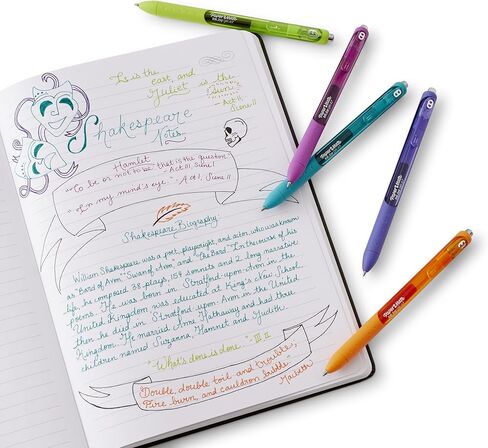 It is the
east, and
Juliet is the
sun.
-Act II
Scene II
Shakespeare
Notes
Hamlet
"To be or not to be that is the question."
-Act III, Scene I
"In my mind's eye." -Act I, Scene II
Shakespeare Biography:
William Shakespeare was a poet, playwright, and actor, who was known
as "Bard of Avon," "Swan of Avon" and "The Bard." In the course of his
life, he composed 38 plays, 154 sonnets and 2 long narrative
poems. He was born in Stratford-upon-Avon in the
United Kingdom, was educated at King's New School
then he died in Stratford upon Avon in the United
Kingdom. He married Anne Hathaway and had three
children named Suzanna, Hamnet and Judith.
"What's done is done." - III, II
"Double, double toil and trouble,
Fire burn, and cauldron bubble."
Macbeth
Paper Mate
Paper Mate
Paper Mate
Paper Mate
Paper Mate